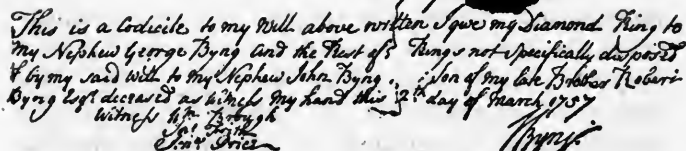 This is a Codicile to my Will above written I give my Diamond Ring to
my Nephew George Byng and the Rest of Rings not Specifically disposed
of by my said will to my Nephew John Byng son of my late Brother Robert
Byng Esqr. deceased as Witness my hand this 12th day of March 1757
Witness Wm. Brough
Jno.
Price
JByng